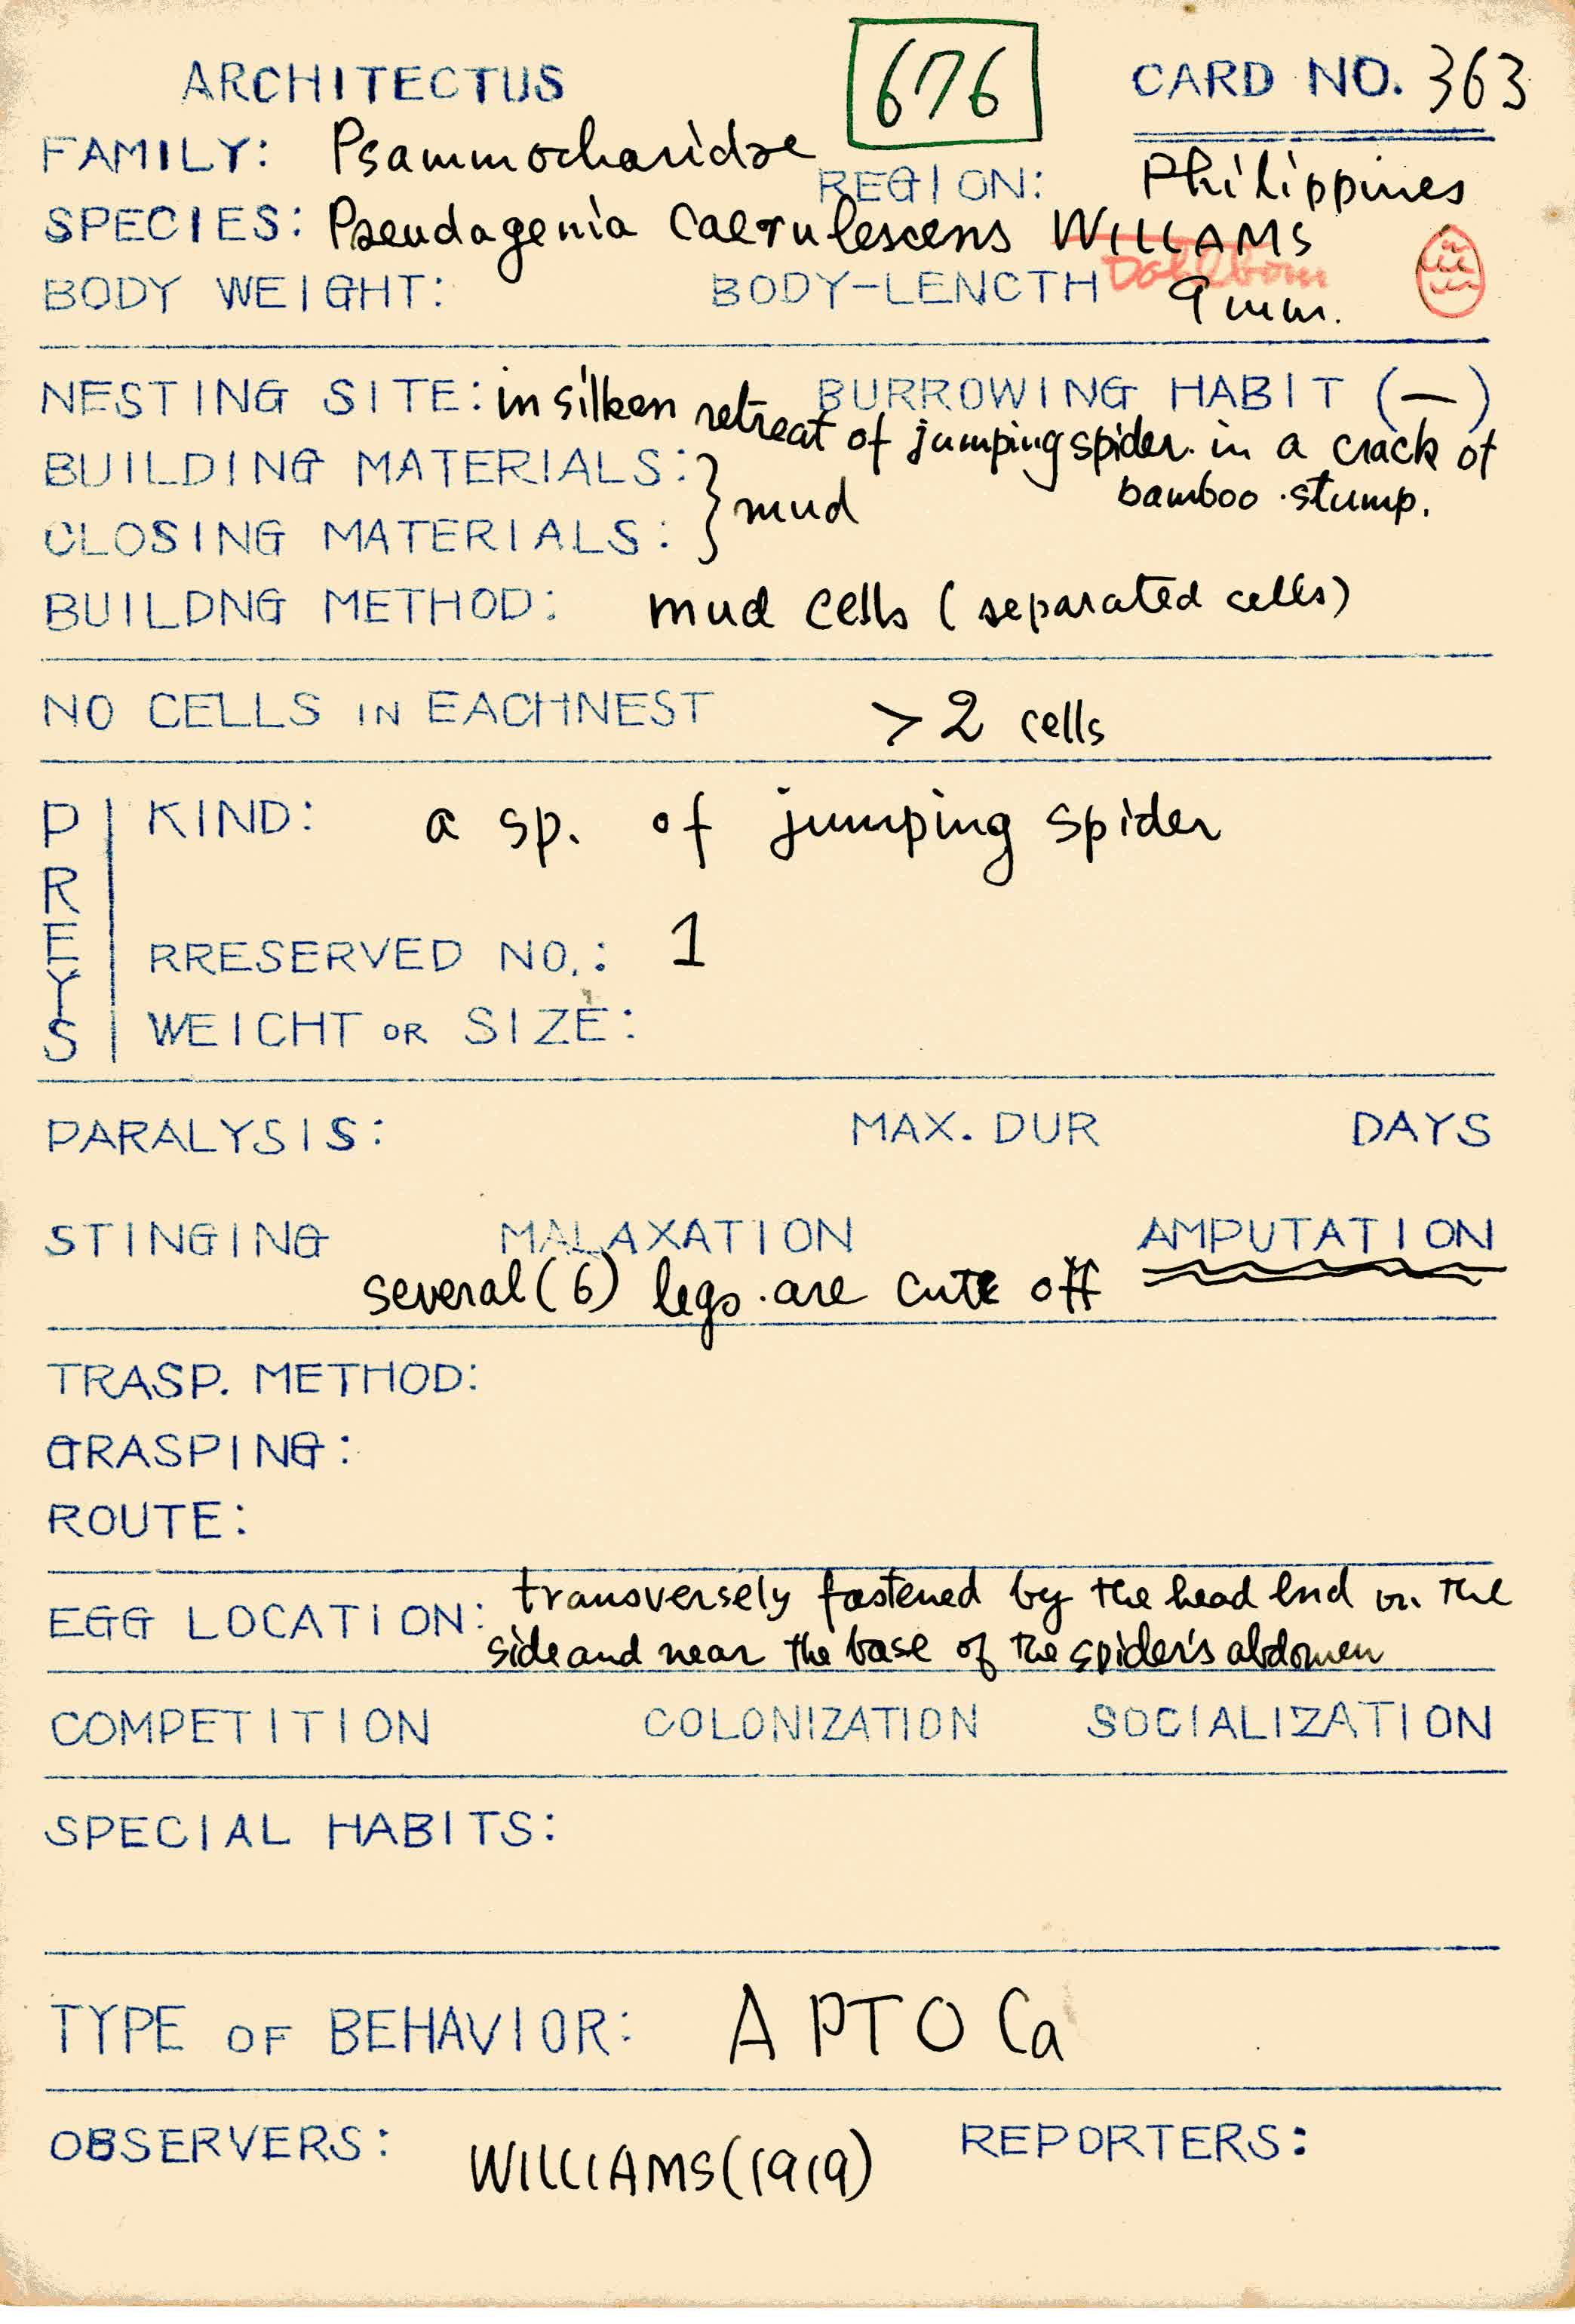 ARCHITECTUS
676
CARD NO. 363
FAMILY: Psammocharidae
REGION: Philippines
SPECIES: Pseudagenia caerulescens WILLIAMS
Dahlbom
BODY WEIGHT:
BODY-LENCTH 9 mm.
NESTING SITE: in silken retreat of jumping spider. in a crack of bamboo stump.
BURROWING HABIT (—)
BUILDING MATERIALS: } mud
CLOSING MATERIALS:
BUILDNG METHOD: mud cells (separated cells)
NO CELLS IN EACHNEST >2 cells
PREYS
KIND: a sp. of jumping spider
RRESERVED NO.: 1
WEICHT OR SIZE:
PARALYSIS: MAX. DUR DAYS
STINGING MALAXATION AMPUTATION
several (6) legs are cute off
TRASP. METHOD:
GRASPING:
ROUTE:
EGG LOCATION: transversely fastened by the head end on the
side and near the base of the spider's abdomen
COMPETITION COLONIZATION SOCIALIZATION
SPECIAL HABITS:
TYPE OF BEHAVIOR: A P T O Ca
OBSERVERS: WILLIAMS (1919) REPORTERS: